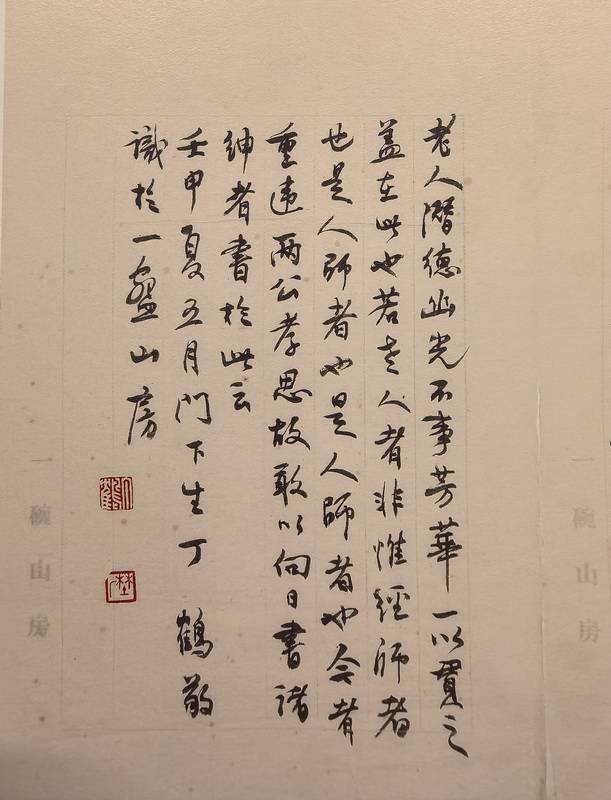 老人潛德幽光不事芳華一以貫之
蓋在此也若老人者非惟經師者
也是人師者也是人師者也今者
重違兩公孝思故敢以向日書諸
紳者書於此云
壬申夏五月門下生丁鶴敬
識於一盌山房
一碗山房
一碗山房